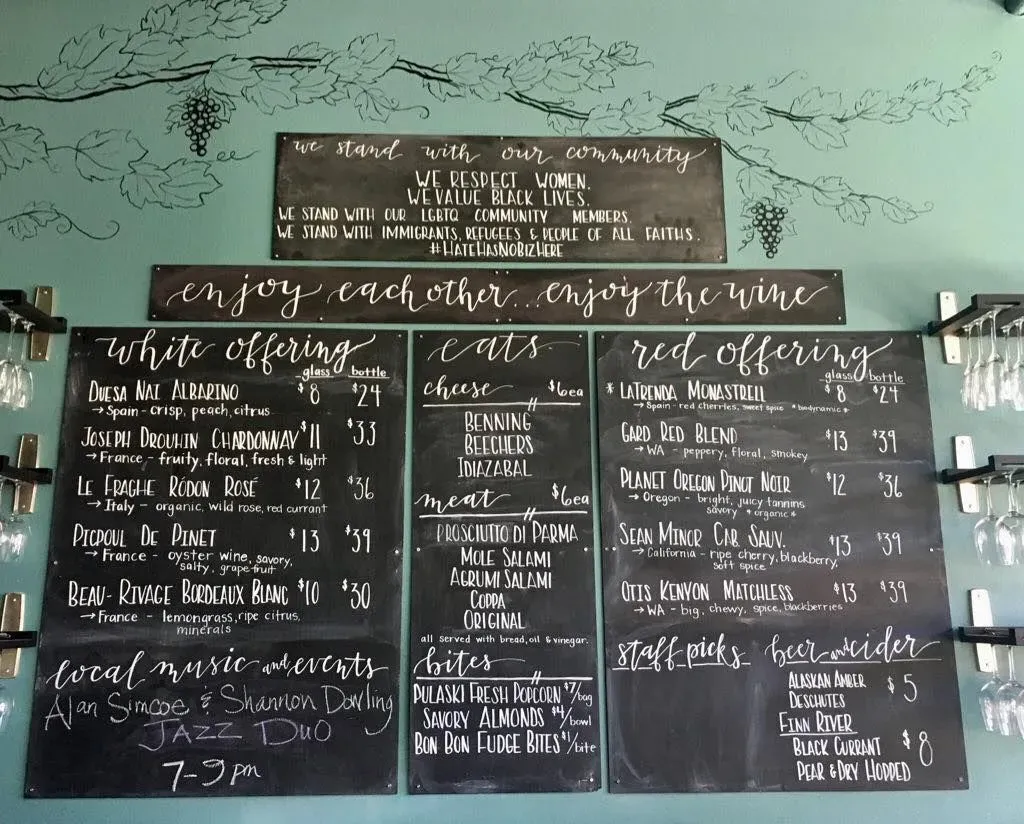 we stand with our community
WE RESPECT WOMEN.
WE VALUE BLACK LIVES.
WE STAND WITH OUR LGBTQ COMMUNITY MEMBERS.
WE STAND WITH IMMIGRANTS, REFUGEES & PEOPLE OF ALL FAITHS.
#HATEHASNOBIZHERE
enjoy each other...enjoy the wine
white offering
glass bottle
DUESA NAI ALBARINO $8 $24
→ Spain - crisp, peach, citrus
JOSEPH DROUHIN CHARDONNAY $11 $33
→ France - fruity, floral, fresh & light
LE FRAGHE RÓDON ROSÉ $12 $36
→ Italy - organic, wild rose, red currant
PICPOUL DE PINET $13 $39
→ France - oyster wine, savory,
salty, grapefruit
BEAU-RIVAGE BORDEAUX BLANC $10 $30
→ France - lemongrass, ripe citrus,
minerals
local music and events
Alan Simcoe & Shannon Dowling
JAZZ DUO
7-9 pm
eats
cheese $6ea
BENNING
BEECHERS
IDIAZABAL
meat $6ea
PROSCIUTTO DI PARMA
MOLE SALAMI
AGRUMI SALAMI
COPPA
ORIGINAL
all served with bread, oil & vinegar.
bites
PULASKI FRESH POPCORN $7/bag
SAVORY ALMONDS $4/bowl
BON BON FUDGE BITES $1/bite
red offering
glass bottle
* LATRENDA MONASTRELL $8 $24
→ Spain - red cherries, sweet spice * biodynamic *
GARD RED BLEND $13 $39
→ WA - peppery, floral, smokey
PLANET OREGON PINOT NOIR $12 $36
→ Oregon - bright, juicy tannins
savory * organic *
SEAN MINOR CAB SAUV. $13 $39
→ California - ripe cherry, blackberry,
soft spice
OTIS KENYON MATCHLESS $13 $39
→ WA - big, chewy, spice, blackberries
staff picks
beer and cider
ALASKAN AMBER $5
DESCHUTES
FINN RIVER
BLACK CURRANT $8
PEAR & DRY HOPPED